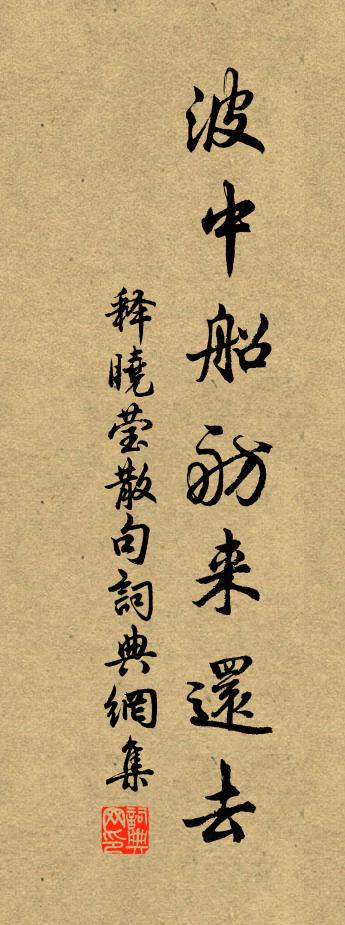 波中船舫来還去
释曉莹散句詞典網集
詞典网印